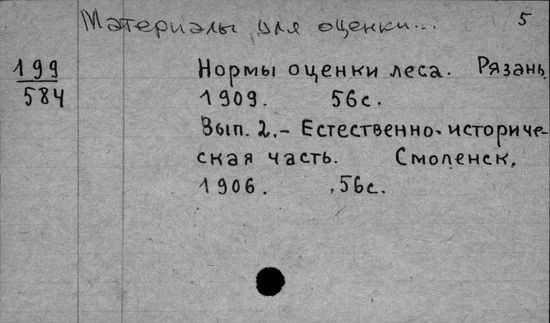 Материалы для оценки... 5
199
584
Нормы оценки леса. Рязань,
1909. 56с.
Вып. 2.- Естественно-историче-
ская часть. Смоленск,
1906. 56с.